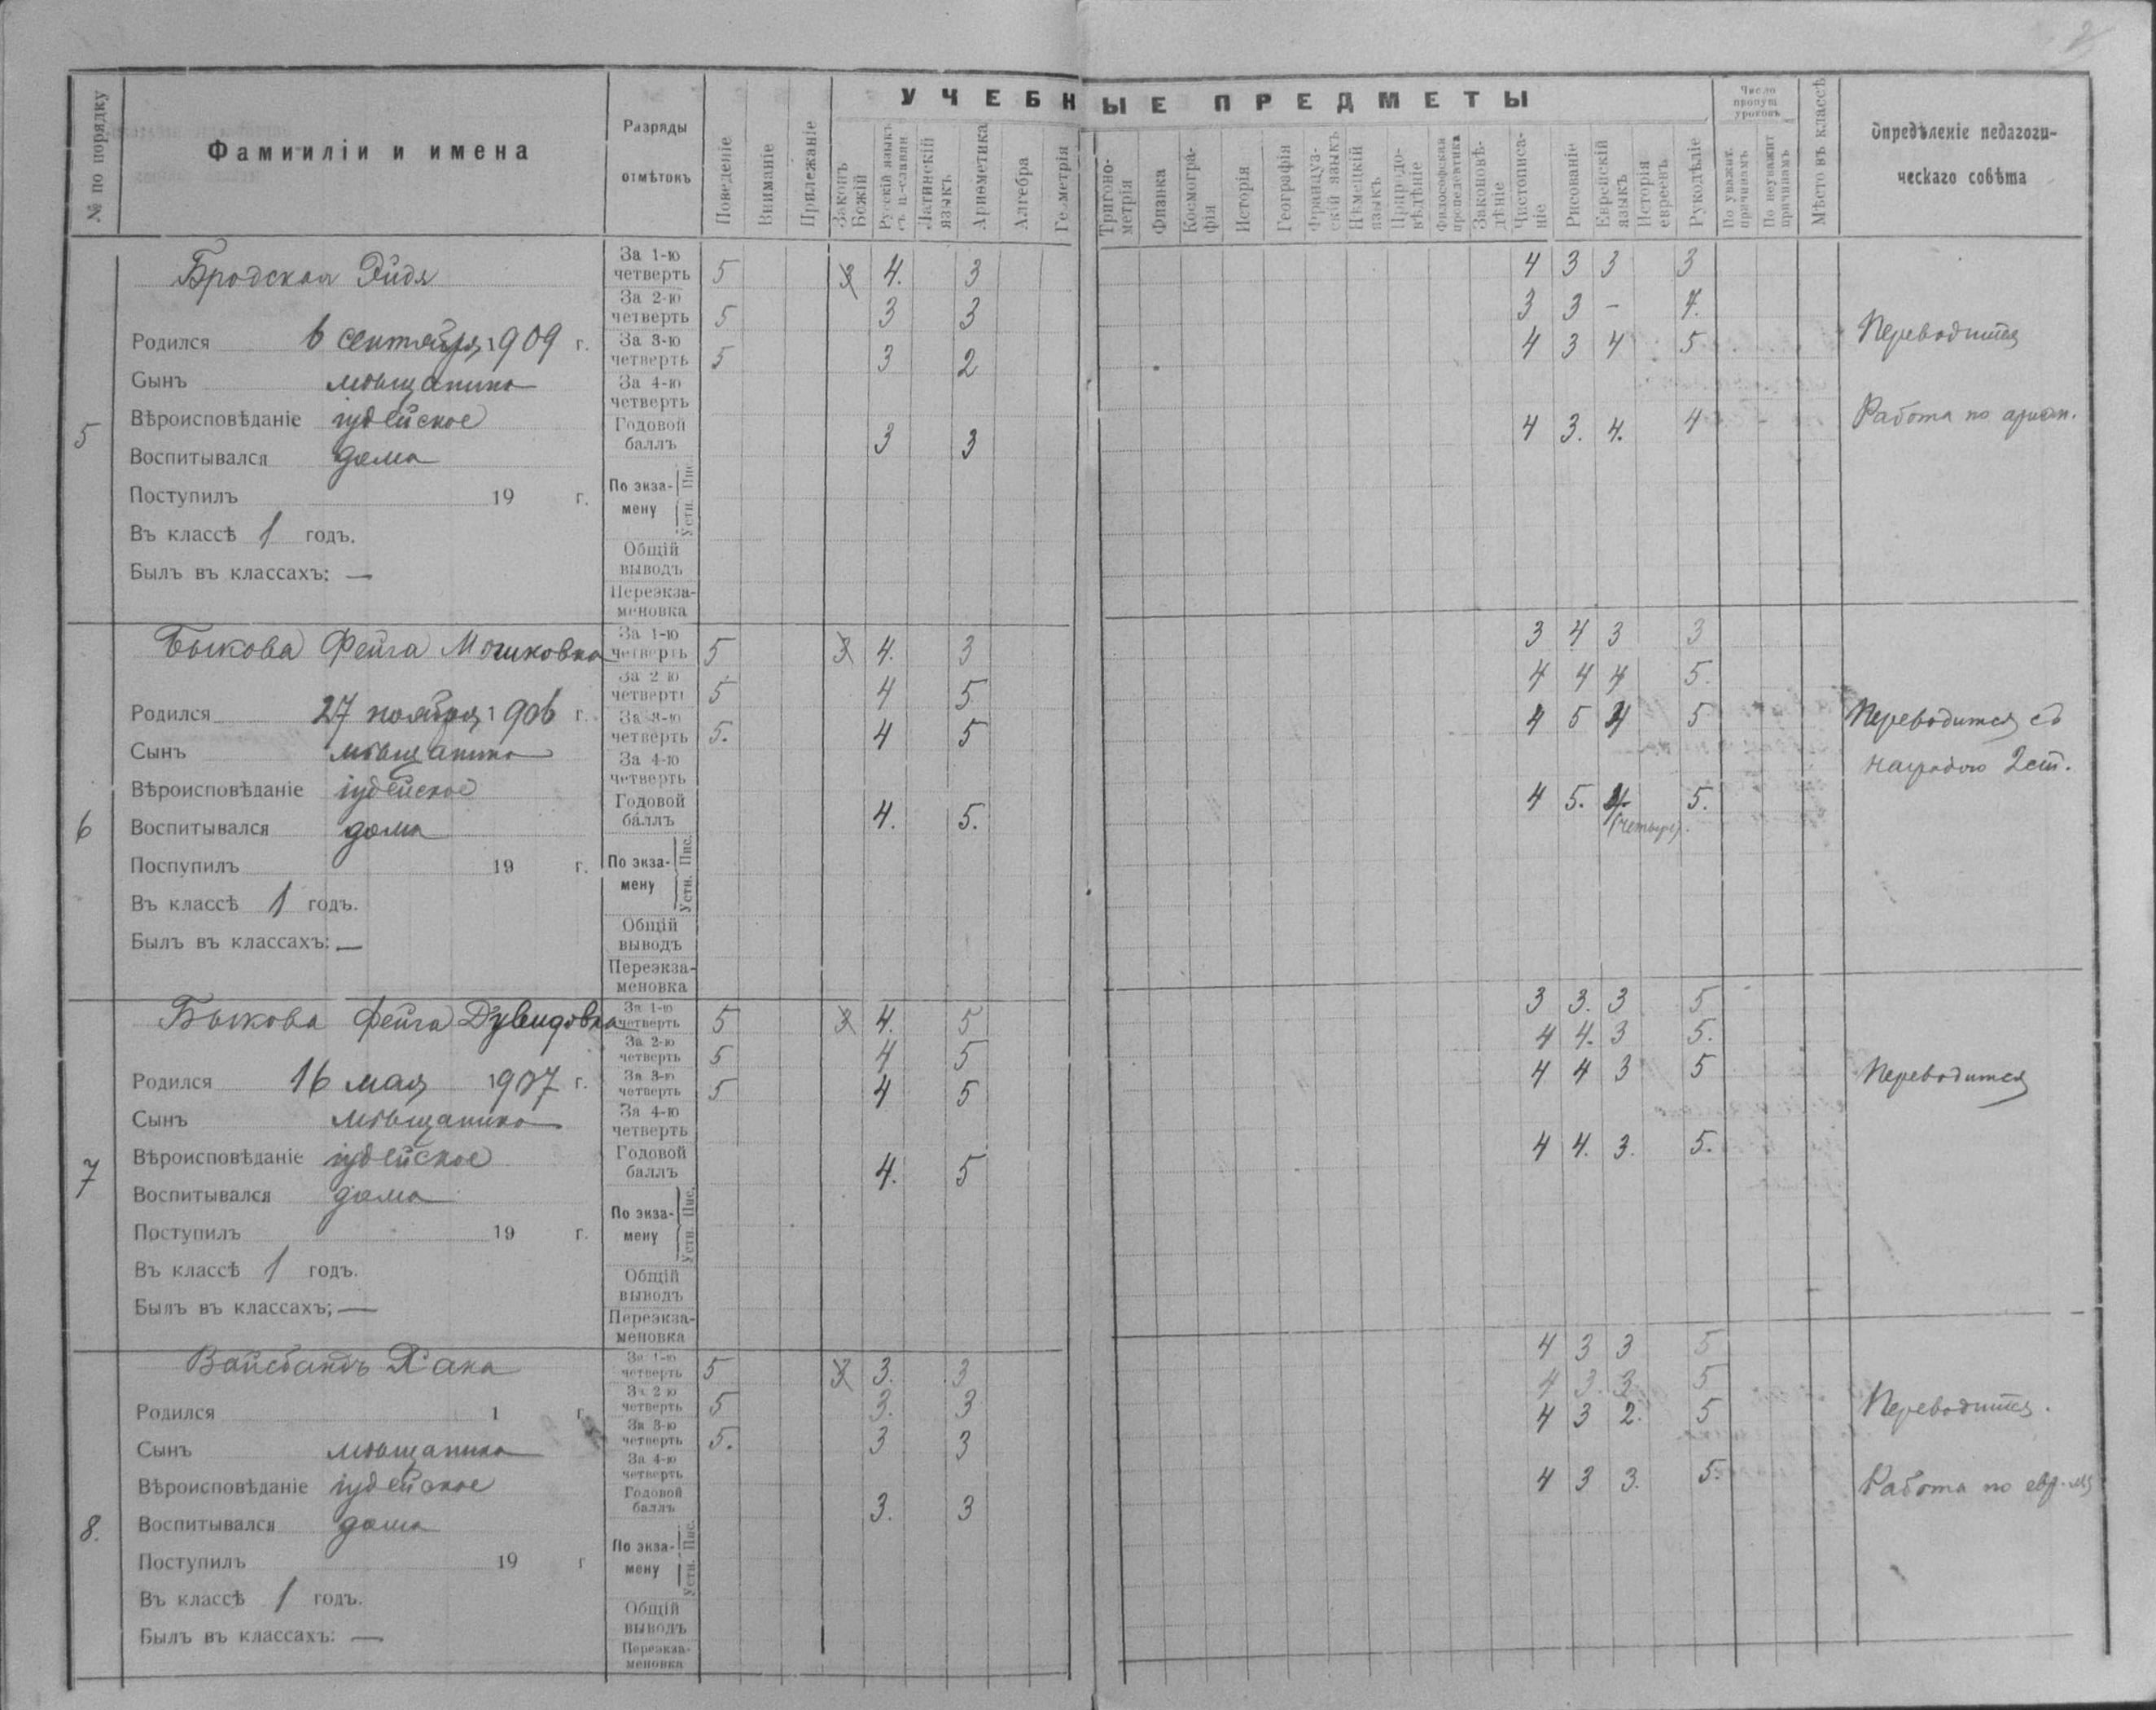 2
№ по порядку
Фамииліи и имена
Разряды
отмѣтокъ
Поведеніе
Вниманіе
Прилежаніе
УЧЕБНЫЕ ПРЕДМЕТЫ
Законъ Божій
Русскій языкъ съ ц-славян
Латинскій языкъ
Ариѳметика
Алгебра
Геометрія
Тригоно-метрія
Физика
Космогра-фія
Исторія
Географія
Француз-скій языкъ
Нѣмецкій языкъ
Природо-вѣдѣніе
Философская пропедевтика
Законовѣ-дѣніе
Чистописа-ніе
Рисованіе
Еврейскій языкъ
Исторія евреевъ
Рукодѣліе
Число пропущ уроковъ
По уважит. причинамъ
По неуважит причинамъ
Мѣсто въ классѣ
Опредѣленіе педагоги-
ческаго совѣта
5
Бродская Эйдя
Родился 6 сентября 1909 г.
Сынъ мѣщанина
Вѣроисповѣданіе іудейское
Воспитывался дома
Поступилъ 19 г.
Въ классѣ 1 годъ.
Былъ въ классахъ: —
За 1-ю четверть 5 3 4. 3 4 3 3 3
За 2-ю четверть 5 3 3 3 3 – 4.
За 3-ю четверть 5 3 2 4 3 4 5
За 4-ю четверть
Годовой баллъ 3 3 4 3. 4. 4
По экза-мену Устн. Пис.
Общій выводъ
Переэкза-меновка
Переводится
Работа по ариѳм.
6
Быкова Фейга Мошковна
Родился 27 ноября 1906 г.
Сынъ мѣщанина
Вѣроисповѣданіе іудейское
Воспитывался дома
Поспупилъ 19 г.
Въ классѣ 1 годъ.
Былъ въ классахъ: —
За 1-ю четверть 5 3 4. 3 3 4 3 3
За 2 ю четверть 5 4 5 4 4 4 5.
За 3-ю четверть 5. 4 5 4 5 4 5
За 4-ю четверть
Годовой баллъ 4. 5. 4 5. 4. 5.
(четыре).
По экза-мену Устн. Пис.
Общій выводъ
Переэкза-меновка
Переводится съ
наградою 2 ст.
7
Быкова Фейга Дувидовна
Родился 16 мая 1907 г.
Сынъ мѣщанина
Вѣроисповѣданіе іудейское
Воспитывался дома
Поступилъ 19 г.
Въ классѣ 1 годъ.
Былъ въ классахъ; —
За 1-ю четверть 5 3 4. 5 3 3. 3 5
За 2-ю четверть 5 4 5 4 4. 3 5.
За 3-ю четверть 5 4 5 4 4 3 5
За 4-ю четверть
Годовой баллъ 4. 5 4 4. 3. 5.
По экза-мену Устн. Пис.
Общій выводъ
Переэкза-меновка
Переводится
8.
Вайсбандъ Хана
Родился 1 г.
Сынъ мѣщанина
Вѣроисповѣданіе іудейское
Воспитывался дома
Поступилъ 19 г
Въ классѣ 1 годъ.
Былъ въ классахъ: —
За 1-ю четверть 5 3 3. 3 4 3 3 5
За 2 ю четверть 5 3. 3 4 3. 3 5
За 3-ю четверть 5. 3 3 4 3 2. 5
За 4-ю четверть
Годовой баллъ 3. 3 4 3 3. 5.
По экза-мену Устн. Пис.
Общій выводъ
Переэкза-меновка
Переводится.
Работа по евр.